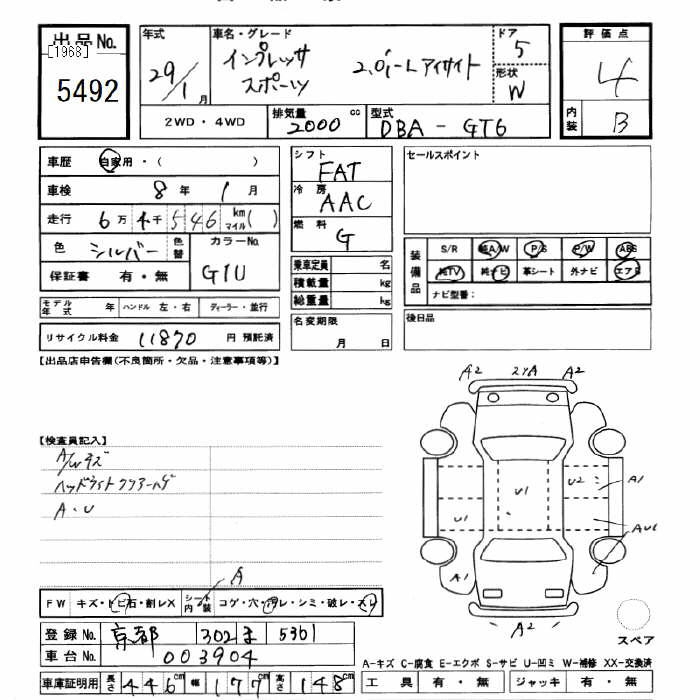 出品No.
[1968]
5492
年式
29/1月
車名・グレード
インプレッサ
スポーツ
2.0i-L アイサイト
ドア
5
形状
W
評価点
4
内装
B
2WD・4WD
排気量
2000 cc
型式
DBA-GT6
車歴 自家用・( )
車検 8年 1月
走行 6万4千546 km マイル( )
色 シルバー 色替
カラーNo.
G1U
保証書 有・無
モデル年式 年 ハンドル 左・右 ディーラー・並行
リサイクル料金 11870 円 預託済
シフト
FAT
冷房
AAC
燃料
G
乗車定員 名
積載量 kg
総重量 kg
名変期限
月 日
セールスポイント
装備品
S/R 純A/W P/S P/W ABS
純TV 純ナビ 革シート 外ナビ エアB
ナビ型番:
後日品
【出品店申告欄(不良箇所・欠品・注意事項等)】
【検査員記入】
A/Wキズ
ヘッドライトクリアーハゲ
A・U
A2 A2
U1
U2 A1
U1
A1
A2
A
FW キズ・トビ石・割レX シート内装 コゲ・穴・汚レ・シミ・破レ・スレ
登録No. 京都 302 ま 5301
車台No. 003904
車庫証明用 長さ 446cm 幅 177cm 高さ 148cm
スペア
A-キズ C-腐食 E-エクボ S-サビ U-凹ミ W-補修 XX-交換済
工具 有・無 ジャッキ 有・無